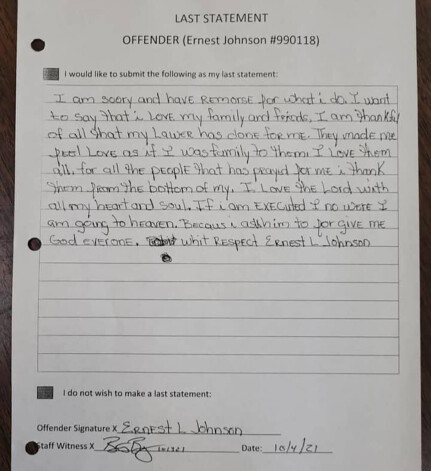 LAST STATEMENT
OFFENDER (Ernest Johnson #990118)
I would like to submit the following as my last statement:
I am soory and have Remorse for what i do. I want
to say that i Love my family and friends. I am thankful
of all that my Lawer has done for me. They made me
feel Love as if I was family to them. I Love them
all. for all the people that has prayed for me i thank
them from the bottom of my. I Love the Lord with
all my heart and soul. If i am executed I no were I
am going to heaven. Becaus i ask him to for give me
God everone. whit Respect Ernest L Johnson
I do not wish to make a last statement:
Offender Signature X Ernest L Johnson
Staff Witness X Date: 10/4/21